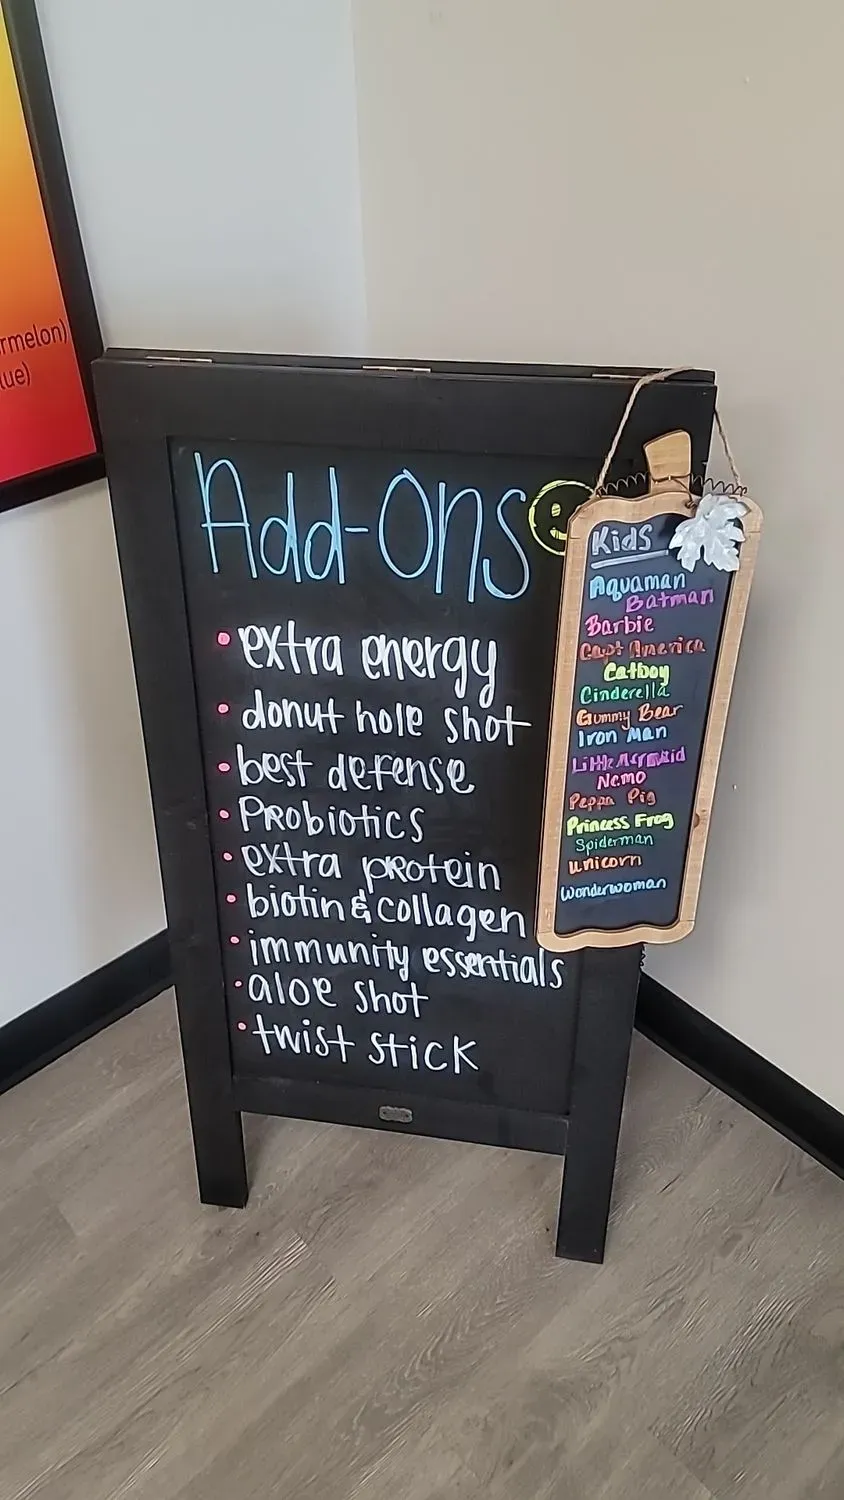 rmelon)
lue)
Add-Ons
• extra energy
• donut hole shot
• best defense
• PRobiotics
• extra pRotein
• biotin & collagen
• immunity essentials
• aloe shot
• twist stick
Kids
Aquaman
Batman
Barbie
Capt America
Catboy
Cinderella
Gummy Bear
Iron Man
Little Mermaid
Nemo
Peppa Pig
Princess Frog
Spiderman
unicorn
Wonderwoman